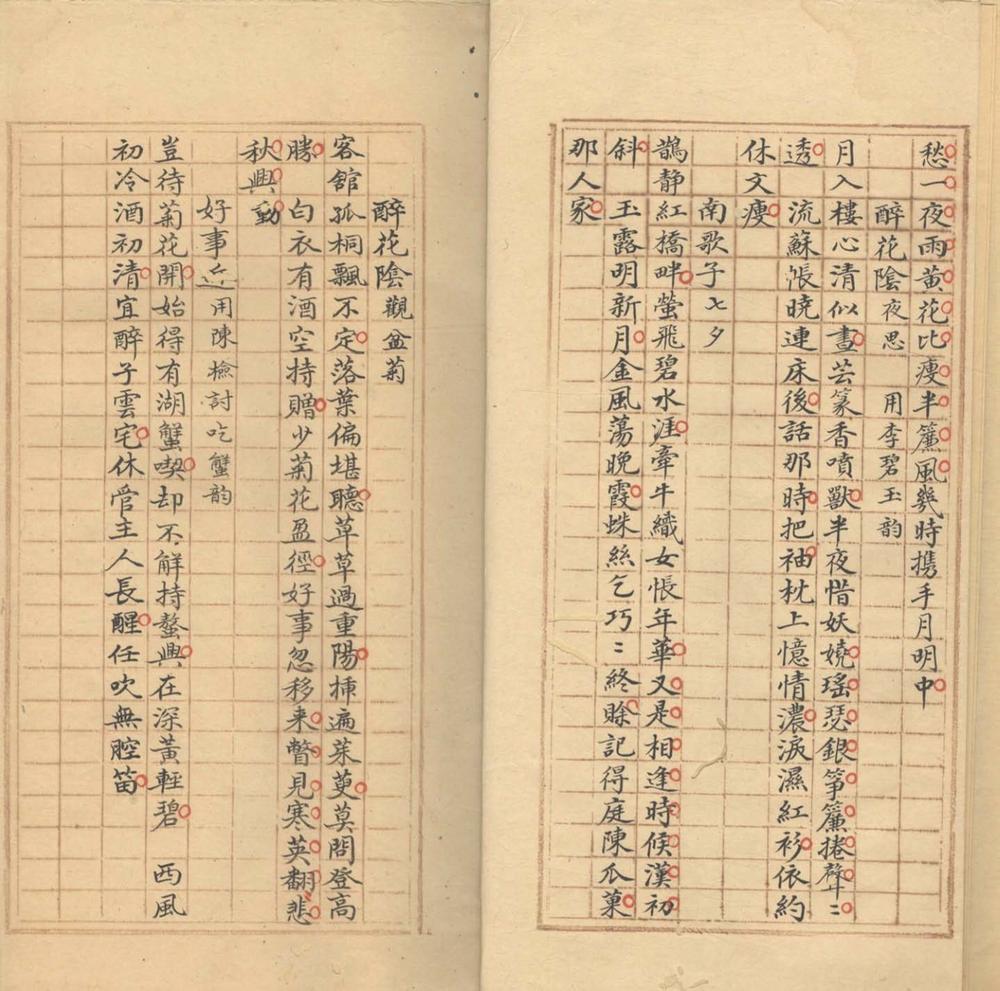 愁一夜雨黃花比瘦半簾風幾時携手月明中
醉花陰夜思 用李碧玉韵
月入樓心清似晝芸篆香噴獸半夜惜妖嬈瑤瑟銀箏簾捲聲〻
透 流蘇悵曉連床後話那時把袖枕上憶情濃淚濕紅衫依約
休文瘦
南歌子七夕
鵲静紅橋畔螢飛碧水涯牽牛織女悵年華又是相逢時候漢初
斜 玉露明新月金風蕩晚霞蛛絲乞巧〻終賒記得庭陳瓜菓
那人家
醉花陰觀盆菊
客舘孤桐飄不定落葉偏堪聽草草過重陽揷遍茱萸莫問登高
勝 白衣有酒空持贈少菊花盈徑好事忽移来瞥見寒英翻悲
秋興動
好事近用陳檢討吃蟹韵
豈待菊花開始得有湖蟹喫却不解持螯興在深黃輕碧 西風
初冷酒初清宜醉子雲宅休管主人長醒任吹無腔笛